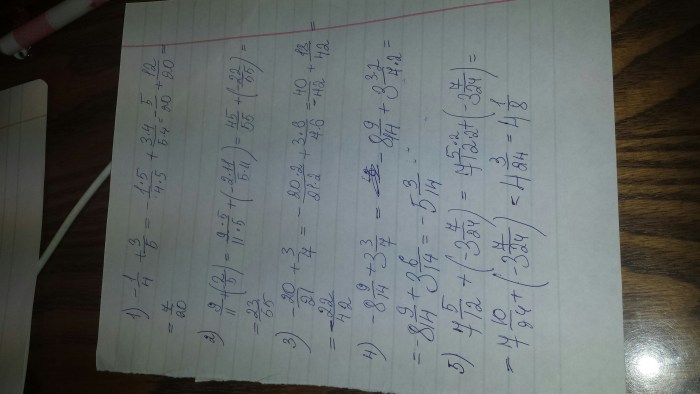 1) -1/4 + 3/5 = -1·5/4·5 + 3·4/5·4 = 5/20 + 12/20 =
= 7/20
2) 9/11 + (2/5) = 9·5/11·5 + (-2·11/5·11) = 45/55 + (-22/55) =
= 23/55
3) -20/21 + 3/7 = -20·2/21·2 + 3·3/7·6 = -40/42 + 18/42 =
= -22/42
4) -8 9/14 + 3 3/7 = -8 9/14 + 3 3·2/7·2 =
= -8 9/14 + 3 6/14 = -5 3/14
5) 7 5/12 + (-3 7/24) = 7 5·2/12·2 + (-3 7/24) =
= 7 10/24 + (-3 7/24) = 4 3/24 = 4 1/8